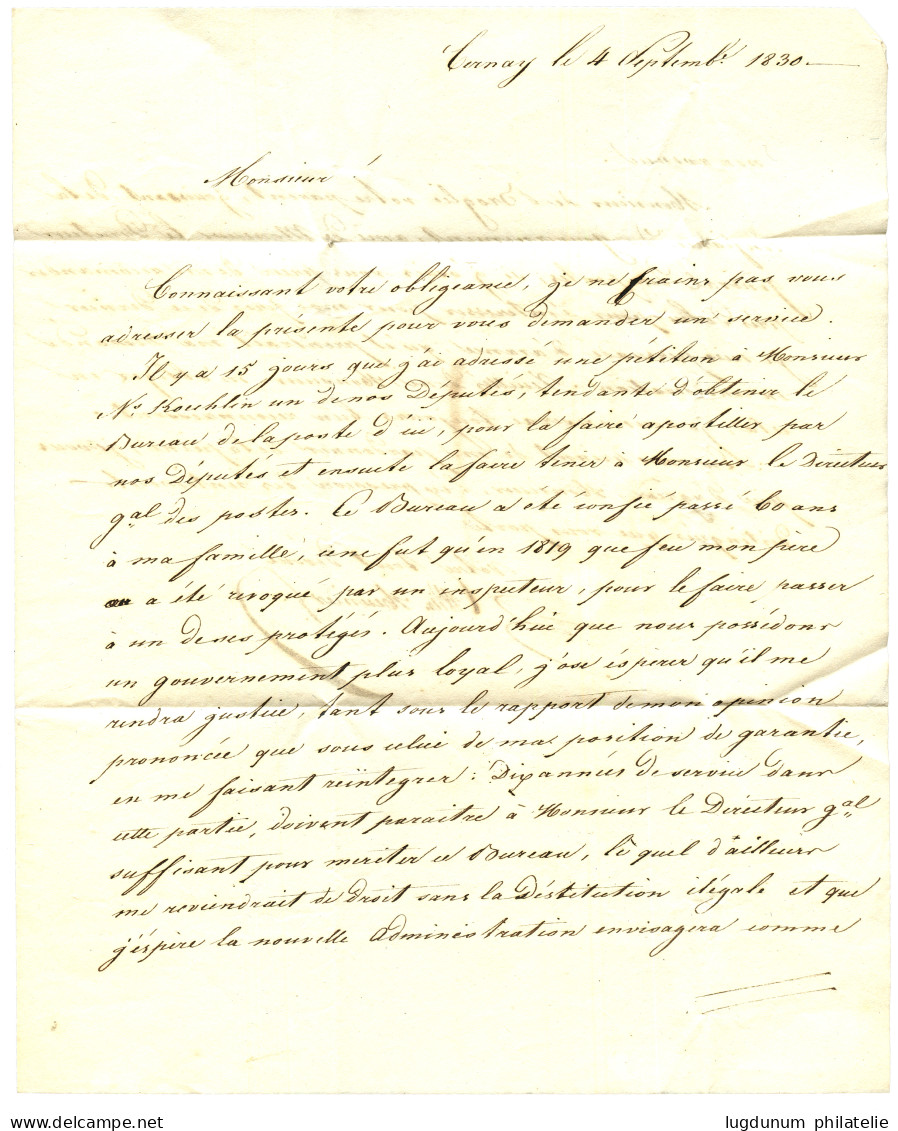 Cernay le 4 Septemb.^r 1830.
Monsieur !
Connaissant votre obligeance, je ne crains pas vous
adresser la présente pour vous demander un service.
Il y a 15 jours que j'ai adressé une pétition à Monsieur
N.^s Koechlin un de nos Députés, tendante d'obtenir le
Bureau de la poste d'ici, pour la faire apostiller par
nos Députés et ensuite la faire tenir à Monsieur le Directeur
g.^al des postes. Ce Bureau a été confié passé 60 ans
à ma famille, ce ne fut qu'en 1819 que feu mon père
a été révoqué par un inspecteur, pour le faire passer
à un de ses protégés. Aujourd'hui que nous possédons
un gouvernement plus loyal, j'ose espérer qu'il me
rendra justice, tant sous le rapport de mon opinion
prononcée que sous celui de ma position de garantie,
en me faisant reïntegrer : Dix années de service dans
cette partie, doivent paraitre à Monsieur le Directeur g.^al
suffisant pour meriter ce Bureau, le quel d'ailleurs
me reviendrait de droit sans la Déstitution ilégale et que
j'éspère la nouvelle administration envisagera comme
lugdunum philatelie